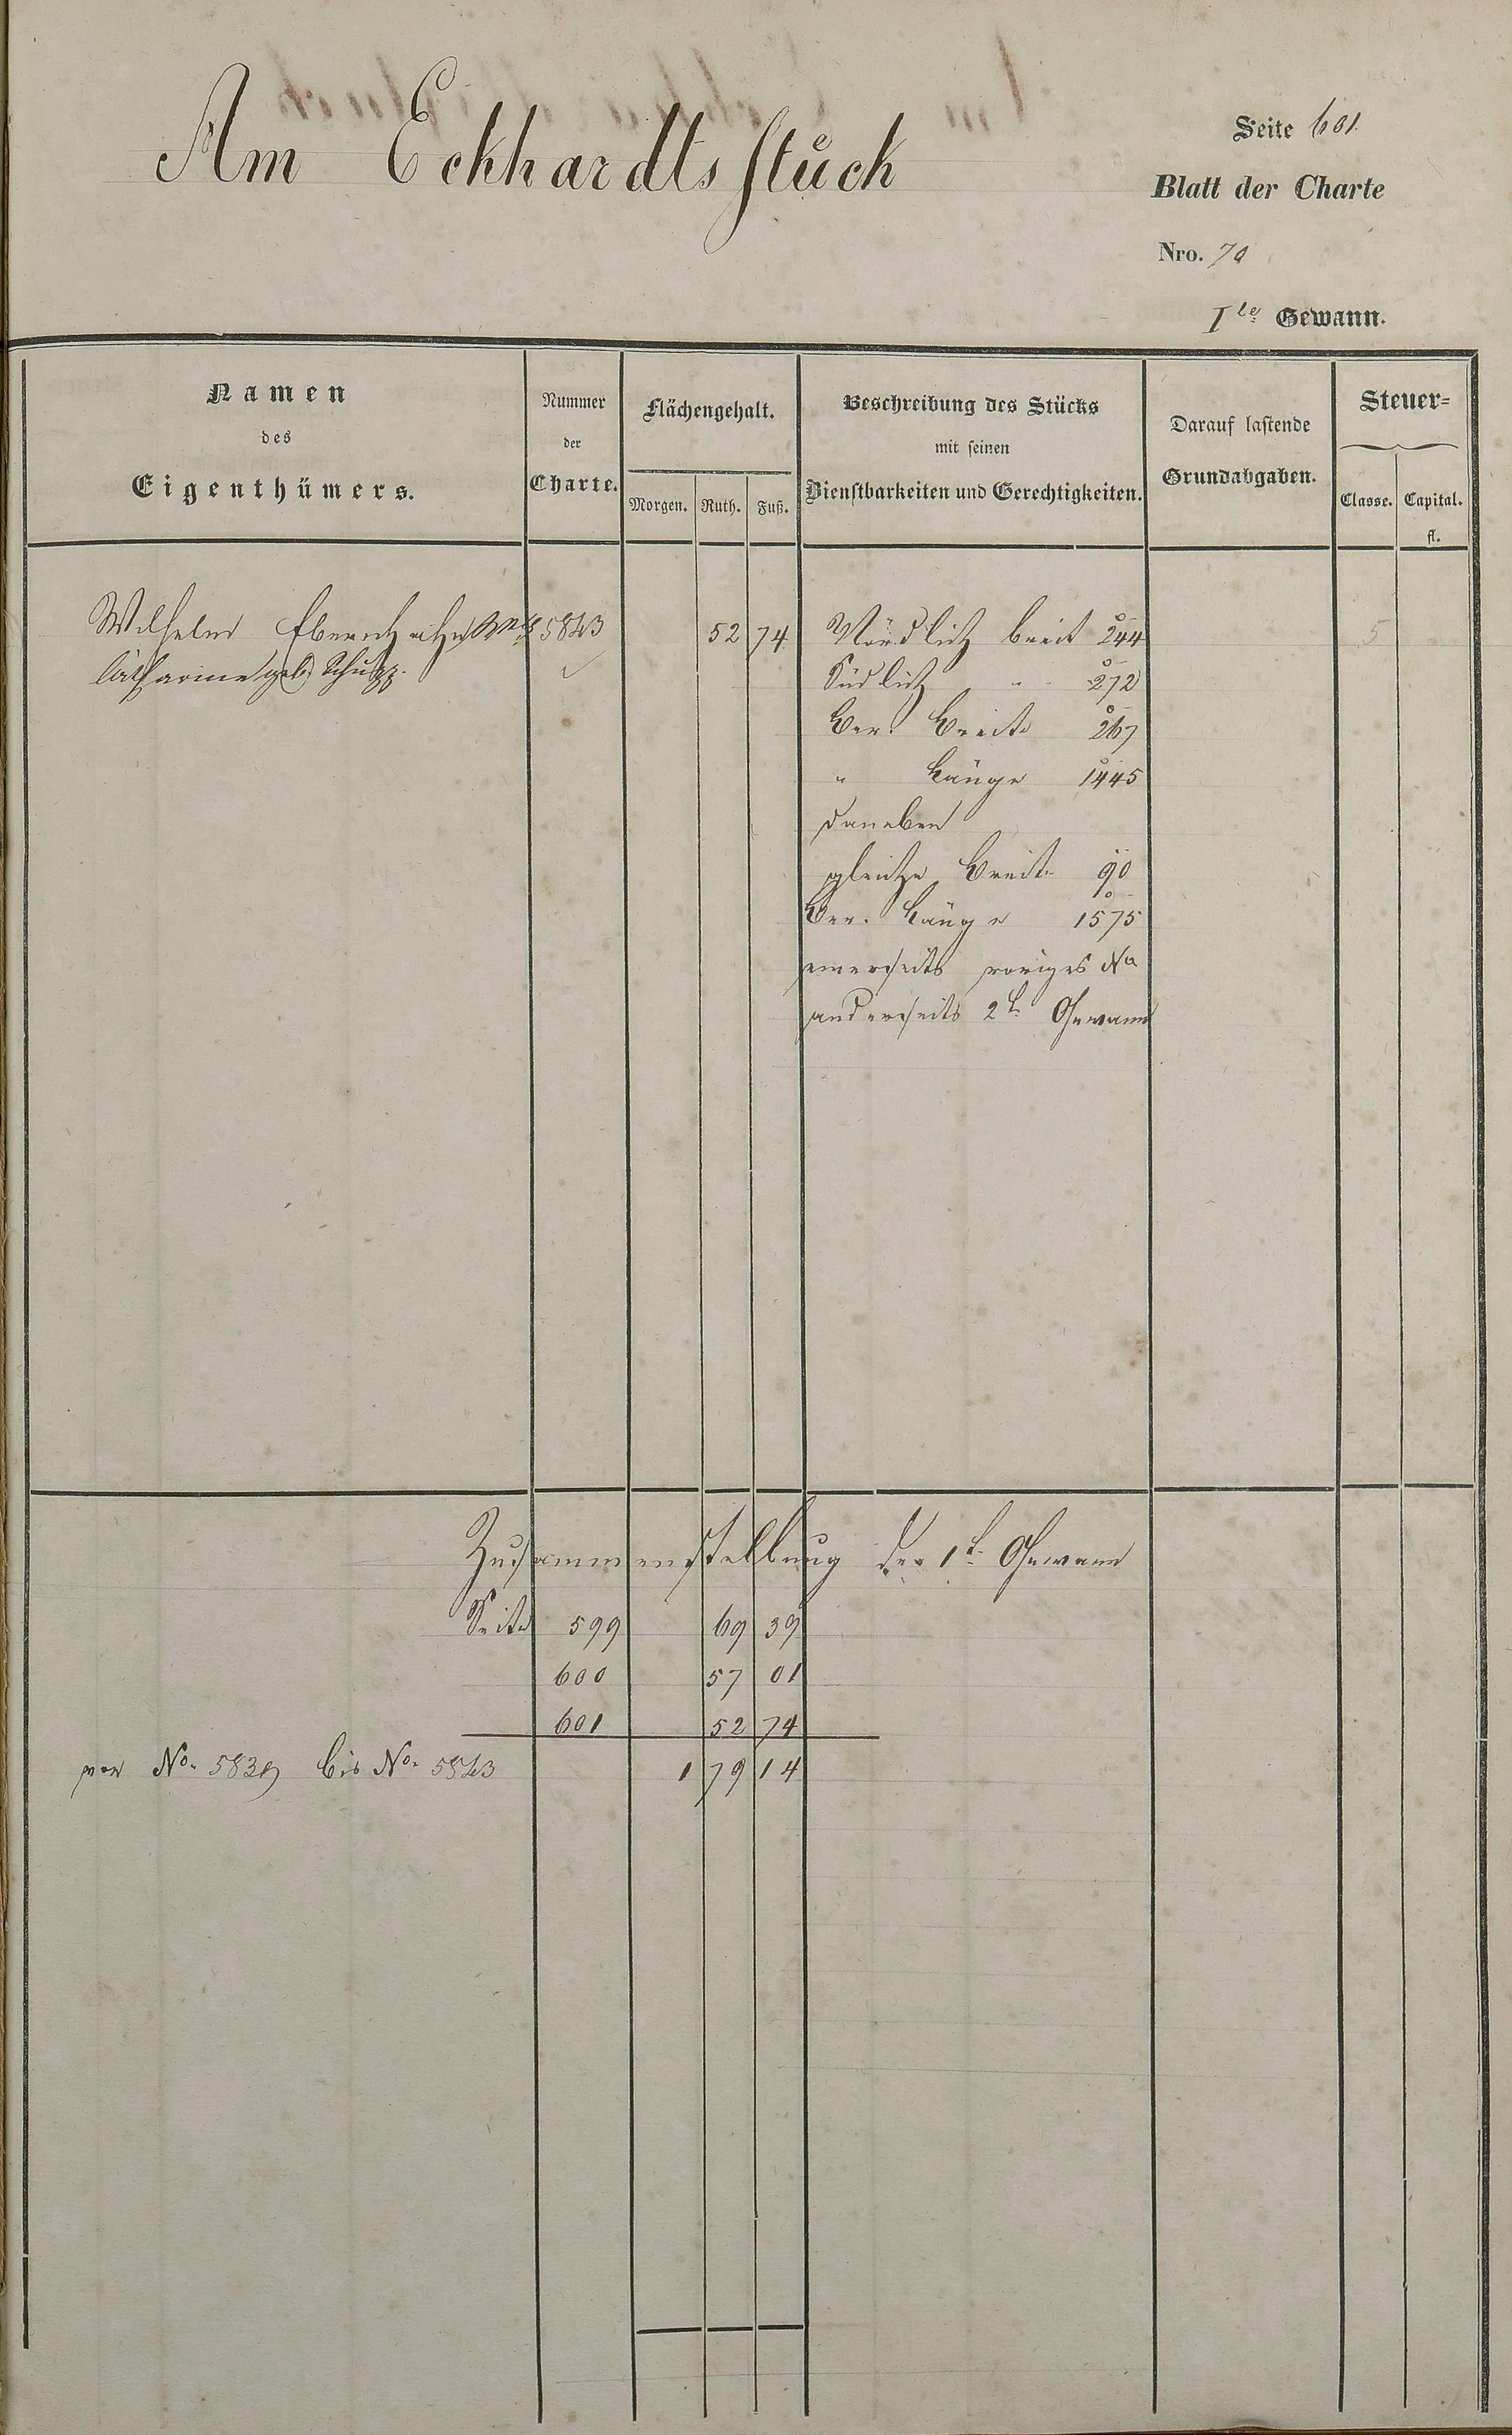 Am Eckhardtsstück
Seite 601.
Blatt der Charte
Nro. 70
Ite Gewann.
Namen
des
Eigenthümers.
Nummer
der
Charte.
Flächengehalt.
Morgen. Ruth. Fuß.
Beschreibung des Stücks
mit seinen
Dienstbarkeiten und Gerechtigkeiten.
Darauf lastende
Grundabgaben.
Steuer=
Classe. Capital.
fl.
Wilhelm 5843 52 74 Nördlich breit 244 5
Catharine geb. Schupp. Südlich " 272
Ber. Breite 267
" Länge 1445
daneben
gleiche Breite 90
Ber. Länge 1575
einerseits voriges No
anderseits 2te Gewann
Zusammenstellung der 1te Gewann
Seite 599 69 39
600 57 01
601 52 74
von No. 5839 bis No. 5843 1 79 14